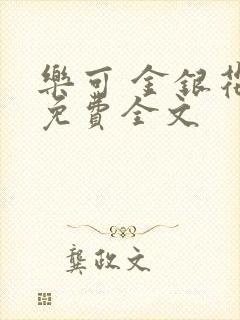 樂可 金銀花
免費全文
龔政文